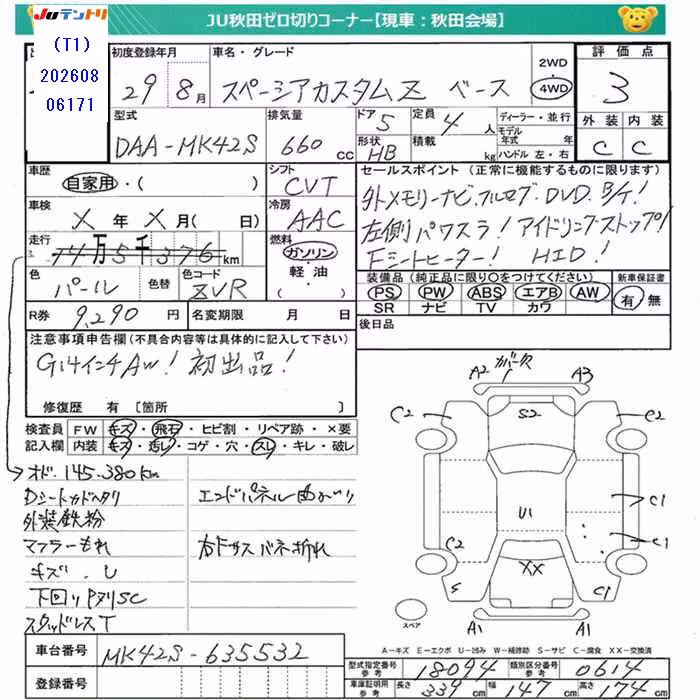 JUテントリ
JU秋田ゼロ切りコーナー【現車：秋田会場】
(T1)
202608
06171
初度登録年月
29 8月
車名・グレード
スペーシアカスタムZ ベース
2WD
4WD
評価点
3
外装 内装
C C
型式
DAA-MK42S
排気量
660 cc
ドア
5
形状
HB
定員
4人
積載
kg
ディーラー・並行
モデル年式 年
ハンドル 左・右
車歴
自家用・( )
シフト
CVT
車検
X年X月( 日)
冷房
AAC
走行
14万5千376km
燃料
ガソリン
軽油
( )
色
パール
色替
色コード
ZVR
R券
9,290円
名変期限 月 日
セールスポイント (正常に機能するものに限ります)
外メモリーナビ フルセグ DVD B/T!
左側パワスラ! アイドリングストップ!
Fシートヒーター! HID!
装備品 (純正品に限り○をつけてください)
PS PW ABS エアB AW
SR ナビ TV カワ
新車保証書
有 無
後日品
注意事項申告欄(不具合内容等は具体的に記入して下さい)
G14インチAW! 初出品!
修復歴 有 [箇所 ]
検査員記入欄
FW キズ・飛石・ヒビ割・リペア跡・×要
内装 キズ・汚レ・コゲ・穴・スレ・キレ・破レ
オド.145.380km
Dシートカドヘタリ
外装鉄粉
マフラーもれ
キズ.U
下回りPヌリSC
スタッドレスT
エンドパネル曲がり
右Fサスバネ折れ
A2 カバー欠 A3
C2 S2 C2
C1
U1
C2 C1
S XX C1
A1 A1
スペア
A－キズ E－エクボ U－凹み W－補修跡 S－サビ C－腐食 XX－交換済
車台番号
MK42S-635532
登録番号
型式指定番号 参考
18094
類別区分番号 参考
0614
車庫証明用 参考
長さ 339cm 幅 147cm 高さ 174cm